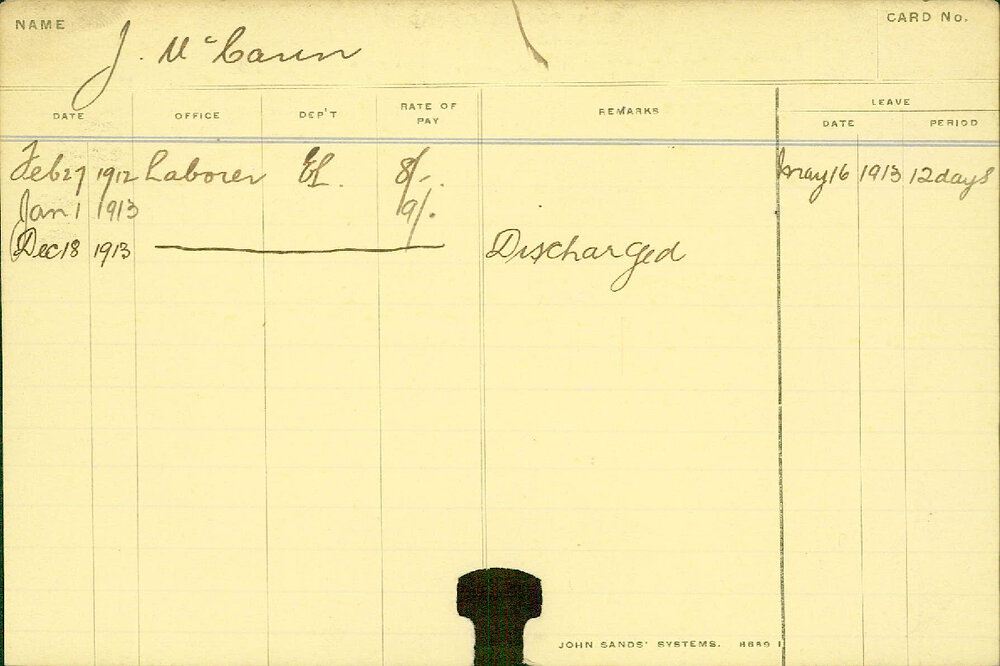 NAME J. McCann CARD No.
LEAVE
DATE OFFICE DEP'T RATE OF PAY REMARKS DATE PERIOD
Feb 27 1912 Laborer EL. 8/-. May 16 1913 12 days
Jan 1 1913 9/.
Dec 18 1913 Discharged
JOHN SANDS' SYSTEMS.